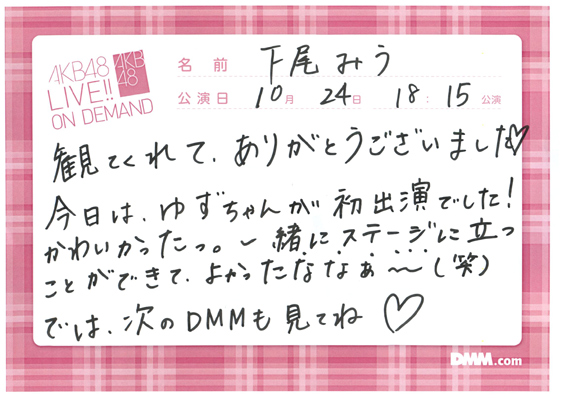 AKB48
LIVE!!
ON DEMAND
AKB
48
名前 下尾みう
公演日 10月 24日 18:15 公演
観てくれて、ありがとうございました♡
今日は、ゆずちゃんが初出演でした!
かわいかったっ。一緒にステージに立つ
ことができて、よかったななぁ〜(笑)
では、次のDMMも見てね ♡
DMM.com